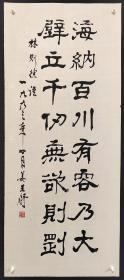 海納百川有容乃大
壁立千仞無欲則剛
林则徐語
一九九三年